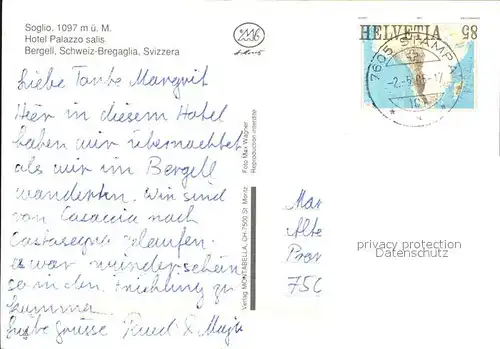 Soglio. 1097 m ü. M.
Hotel Palazzo salis
Bergell, Schweiz-Bregaglia, Svizzera
Liebe Tante Margrit
Hier in diesem Hotel
haben wir übernachtet
als wir im Bergell
wanderten. Wir sind
von Casaccia nach
Castasegna gelaufen.
Es war wunderschön
so in den Frühling zu
kommen
Liebe Grüsse Ruedi &
Foto Max Wagner
Reproduction interdite
Verlag MONTABELLA, CH-7500 St. Moritz
HELVETIA 85
7605 STAMPA
Mar
Alte
750
protection privée
Datenschutz